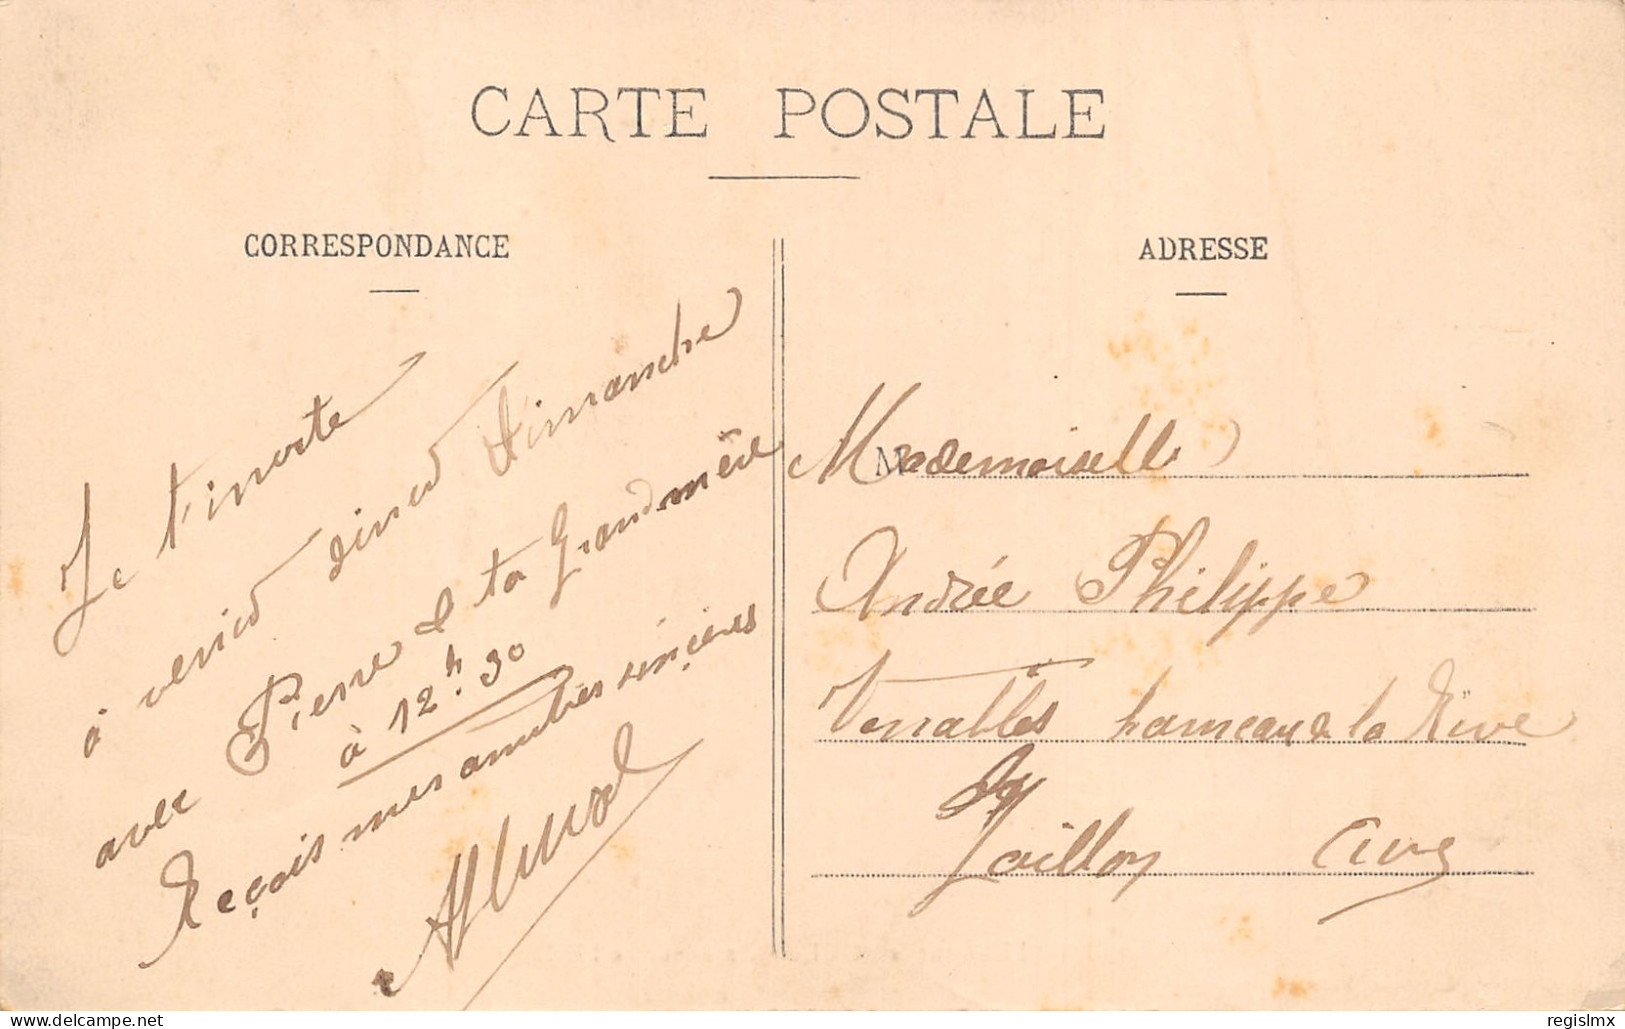 CARTE POSTALE
CORRESPONDANCE
Je t'invite
à venir diner Dimanche
avec Pierre & ta Grandmère
à 12h.30
Reçois mes amitiés sincères
ADRESSE
Mademoiselle
Andrée Philippe
Venables hameau de la Rive
Gaillon Eure
delcampe.net
regislmx